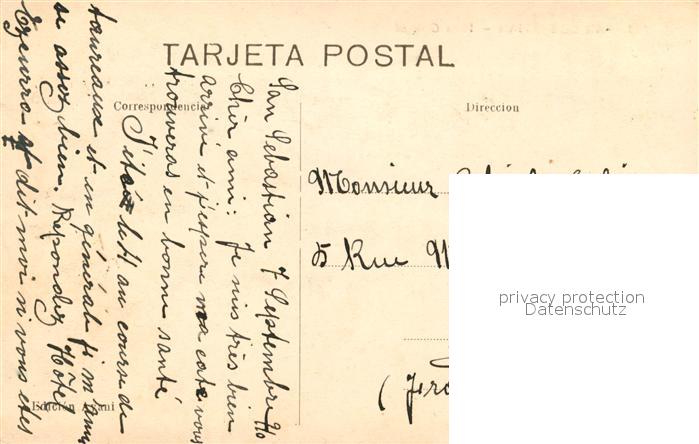 TARJETA POSTAL
Correspondencia
Direccion
San Sebastian 7 Septembre
Cher ami: Je suis très bien
arrivé et j'espere ma carte vous
trouveras en bonne santé
J'étais au course de
taureaux et en général je m'amu
se assez bien. Repondez Hôtel
Ezcurra et dit-moi si vous etes
Monsieur
5 Rue
Edición
privacy protection
Datenschutz